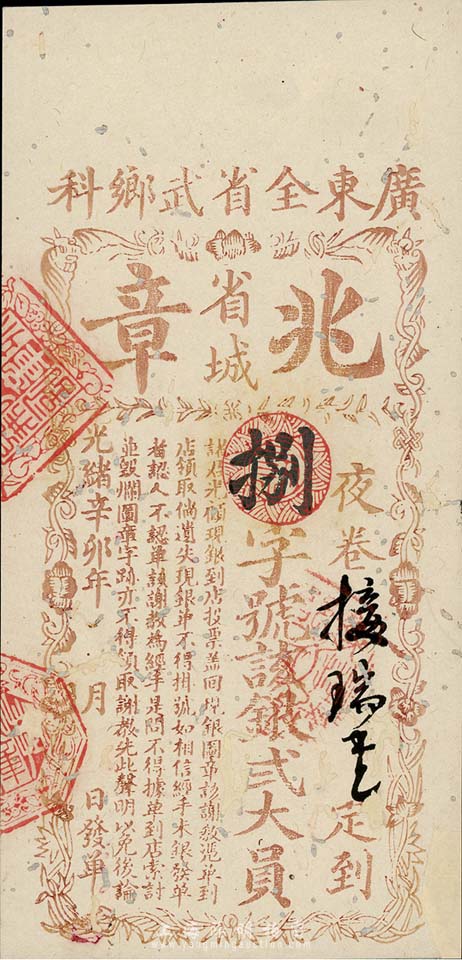 廣東全省武鄉科
兆
省城
章
夜巻接瑞定到
捌字號該銀弍大員
光顧現銀到店投票
銀圖章該謝教憑單到
店領取倘遺失現銀單不得掛號如相信經手未銀發單
者認人不認單該謝教為經手是問不得據單到店索討
並毀爛圖章字跡亦不得領取謝教先此聲明以免後論
光緒辛卯年 月 日發單